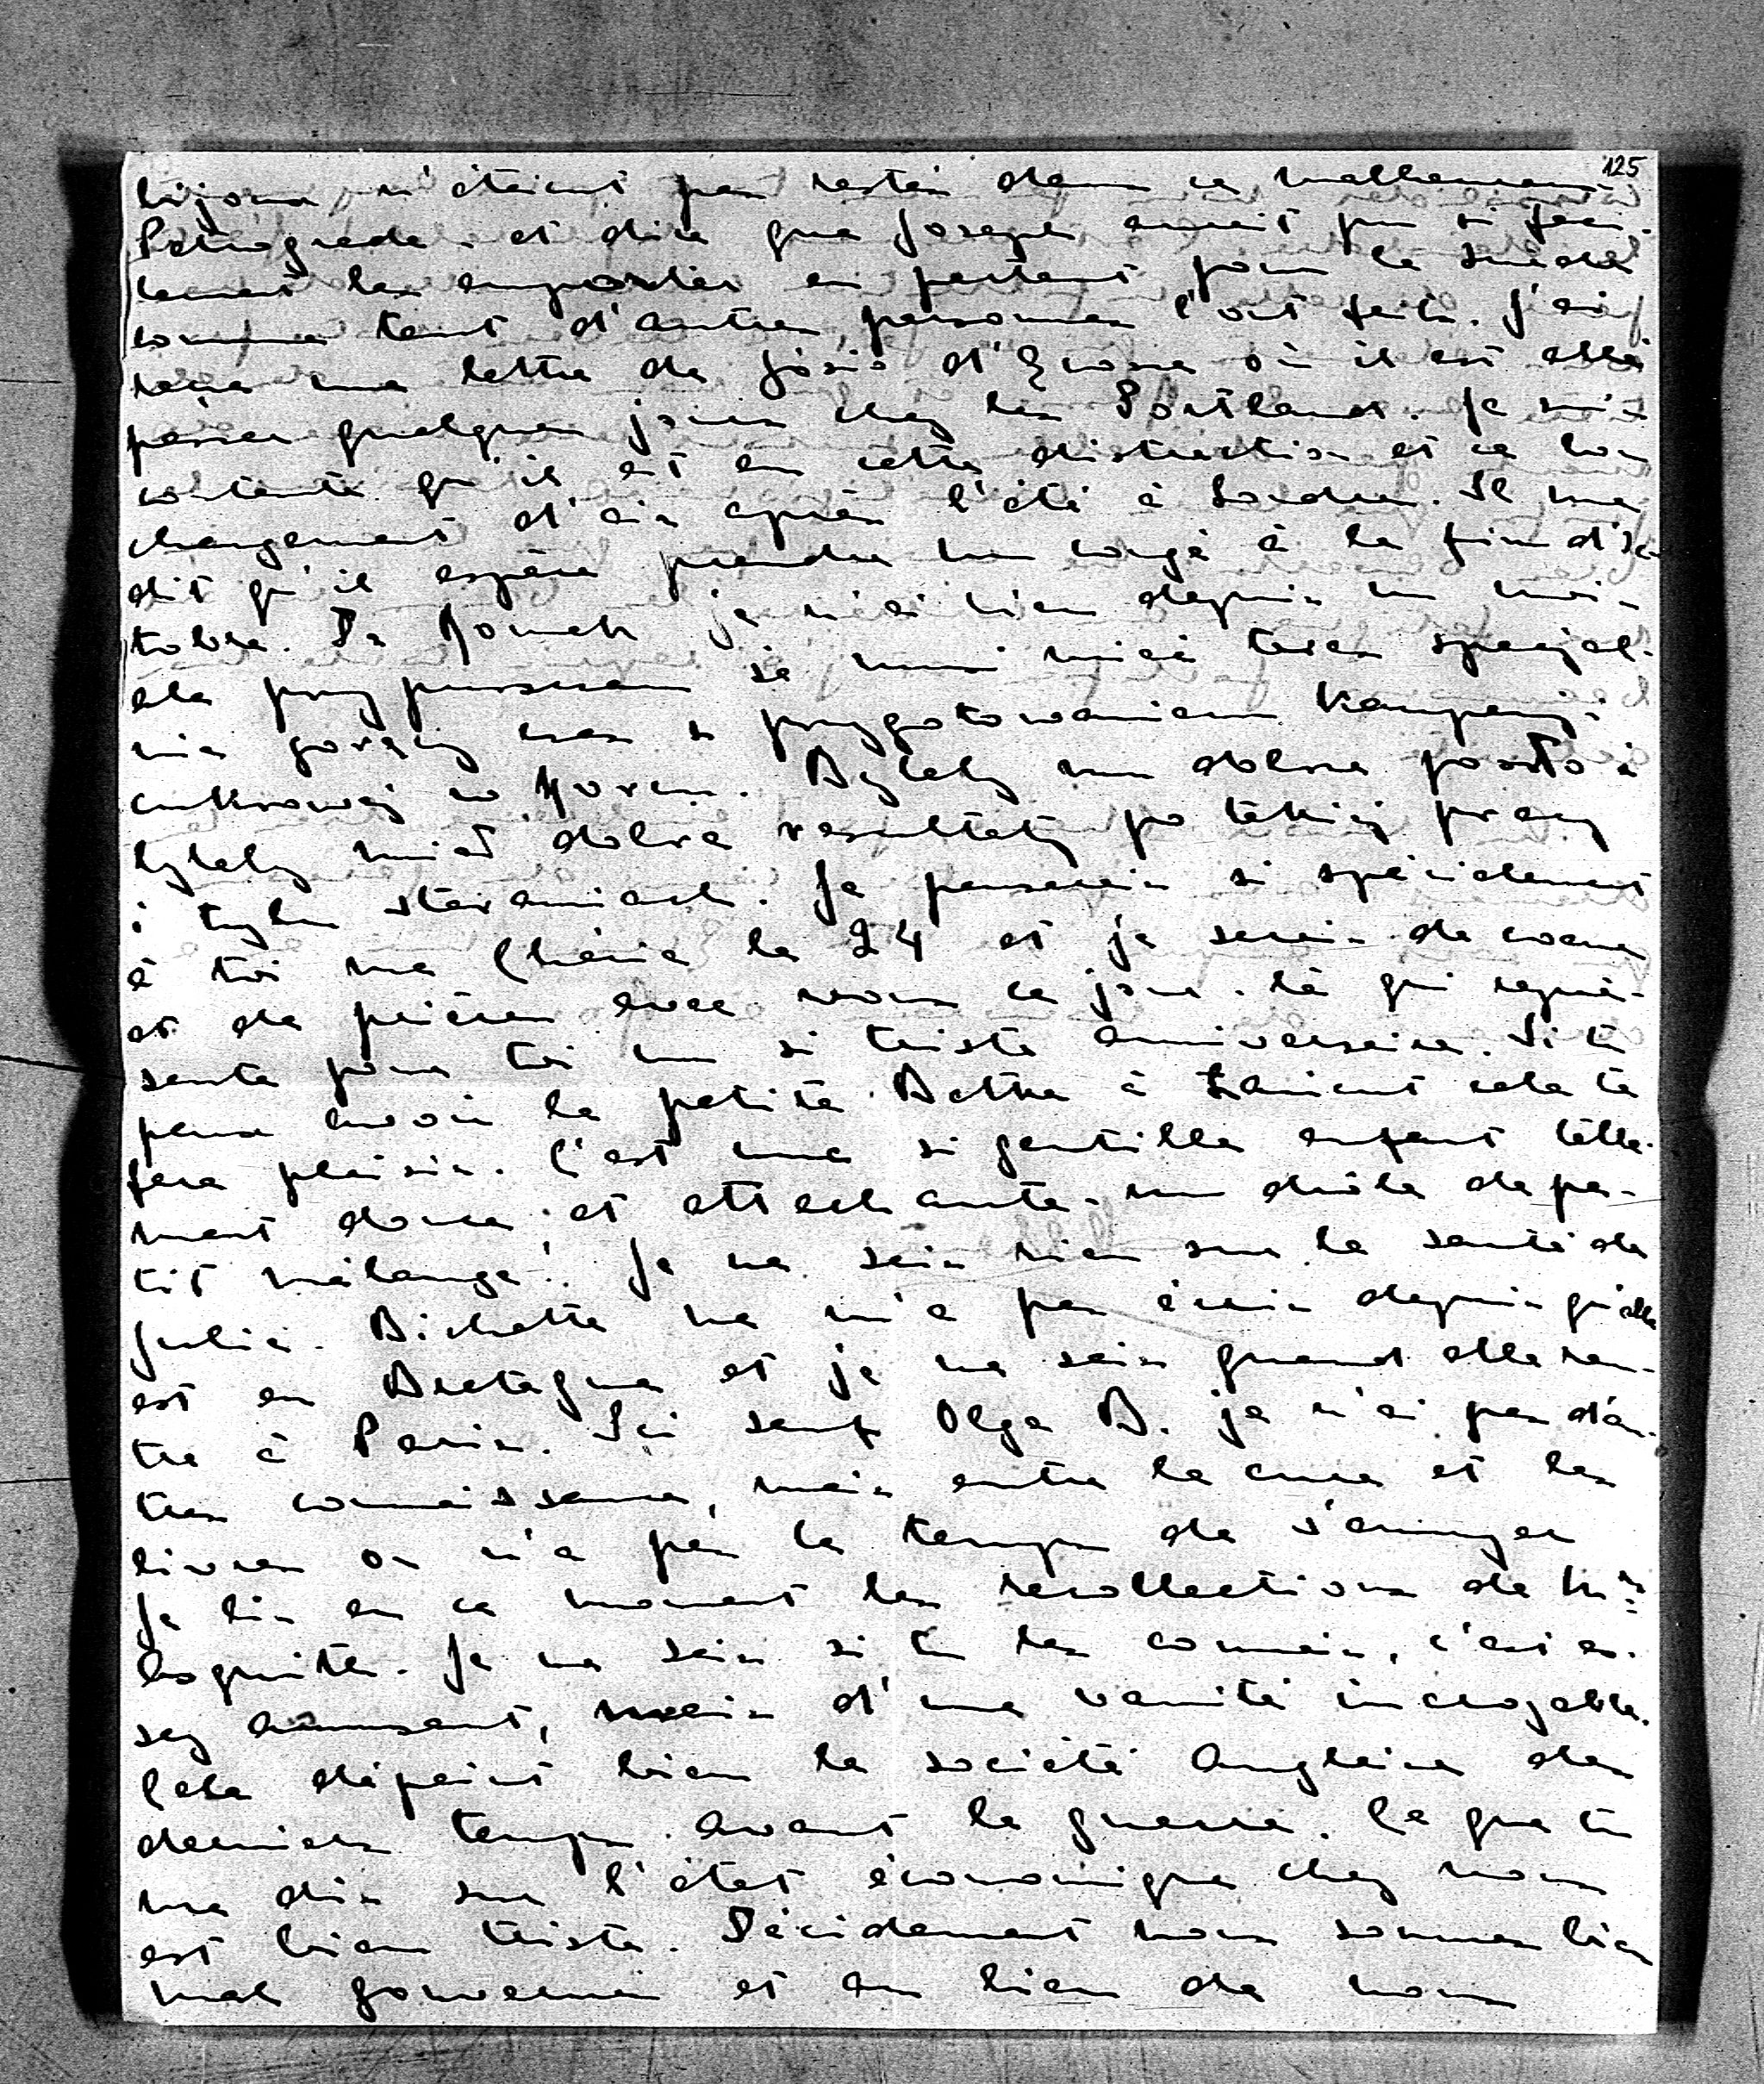 125
bijoux n'étaient pas restés dans ce malheureux
Petrograde. et dire que Joseph aurait pu si faci-
lement les emporter en partant pour la Suède
comme tant d'autres personnes l'ont fait. J'ai
reçu une lettre de Józio d'Ecosse où il est allé
passer quelques jours chez les Portland. Je suis
contente qu'il ait eu cette distraction et ce bon
changement d'air après l'été à Londres. Il me
dit qu'il espère prendre un congé à la fin d'Oc-
tobre. De Romek je n'ai rien depuis un mois
ale przypuszczam że musi mieć teraz specjal-
nie gorący czas z przygotowaniem kampanji
cukrowej w Horyn. Byleby mu dobrze poszło i
byleby miał dobre resultaty po takiej pracy
i tylu staraniach. Je penserais si spécialement
à toi ma Chérie le 24 et je serais de coeur
et de prières avec vous ce jour-là qui repré-
sente pour toi un si triste anniversaire. Si tu
peux avoir la petite Betka à Łańcut cela te
fera plaisir. C'est une si gentille enfant telle-
ment douce et attachante. un drôle de pe-
tit mélange! Je ne sais rien sur la santé de
Julia. Bichette ne m'a pas écris depuis qu'elle
est en Bretagne et je ne sais quand elle ren-
tre à Paris. Ici sauf Olga B. je n'ai pas d'au-
tres connaissances, mais entre la cure et les
livres on n'a pas le temps de s'ennuyer
Je lis en ce moment les recollections de Mrs
Asquith. Je ne sais si tu les connais, c'est as-
sez amusant, mais d'une vanité incroyable.
Cela dépeint bien la société Anglaise des
derniers temps avant la guerre. Ce que tu
me dis sur l'état économique chez nous
est bien triste. Décidement nous sommes bien
mal gouvernés et au lieu de nous